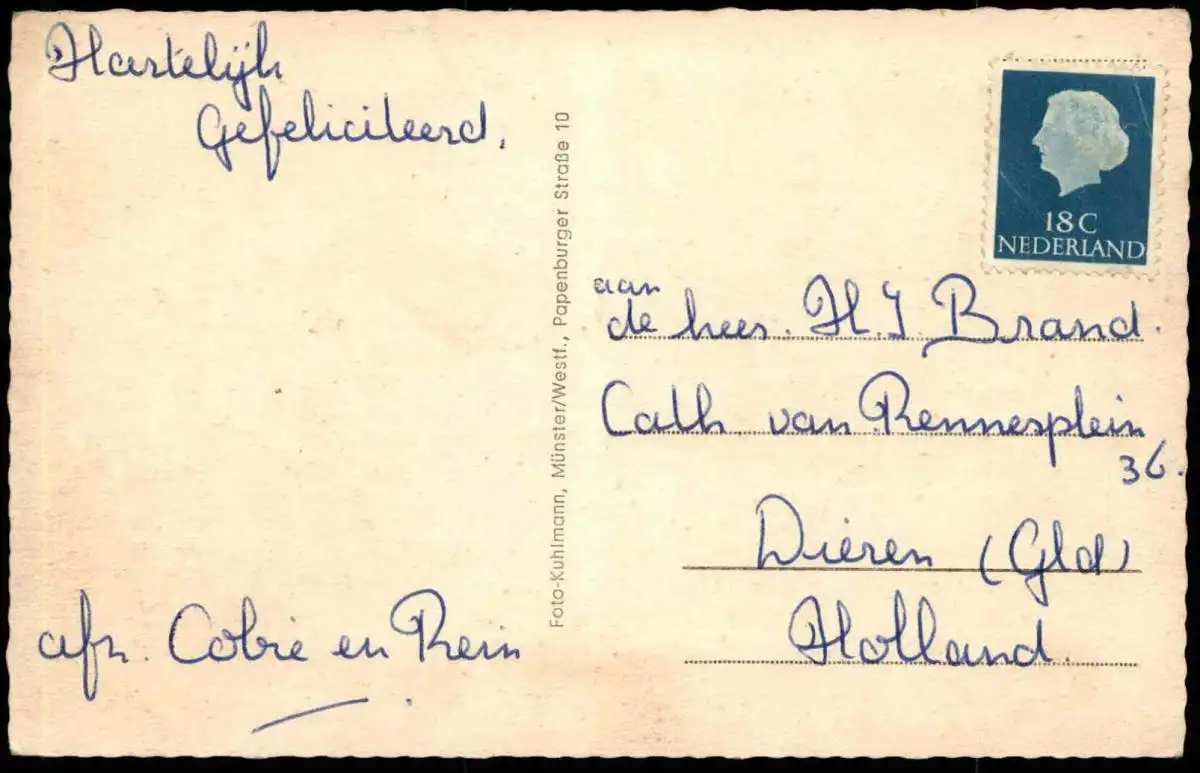 Hartelijk
Gefeliciteerd.
afz. Cobie en Rein
Foto-Kuhlmann, Münster/Westf., Papenburger Straße 10
18 C
NEDERLAND
aan
de heer. H. J. Brand.
Cath. van Rennesplein
36.
Dieren (Gld)
Holland.